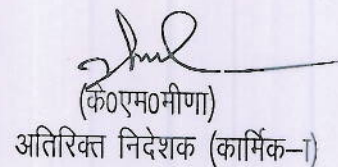 (के०एम०मीणा)
अतिरिक्त निदेशक (कार्मिक–I)